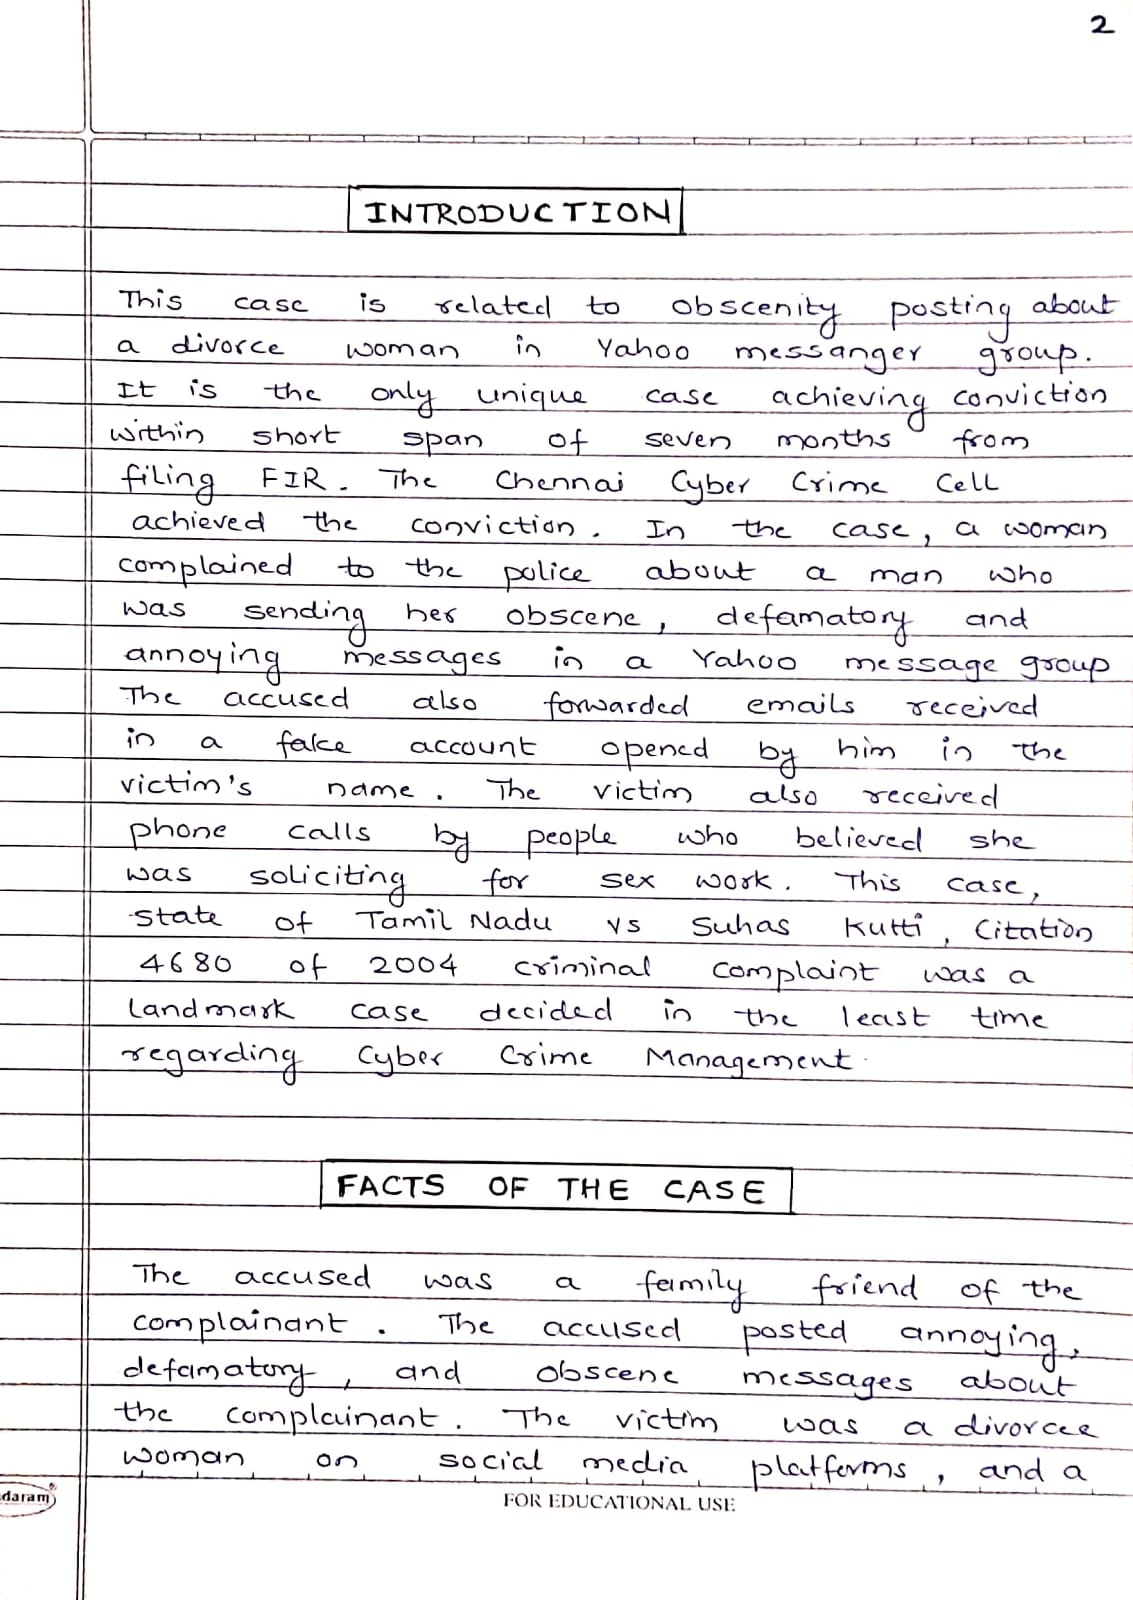 2
INTRODUCTION
This case is related to obscenity posting about
a divorce woman in Yahoo messanger group.
It is the only unique case achieving conviction
within short span of seven months from
filing FIR. The Chennai Cyber Crime Cell
achieved the conviction. In the case, a woman
complained to the police about a man who
was sending her obscene, defamatory and
annoying messages in a Yahoo message group
The accused also forwarded emails received
in a fake account opened by him in the
victim's name. The victim also received
phone calls by people who believed she
was soliciting for sex work. This case,
state of Tamil Nadu vs Suhas Kutti, Citation
4680 of 2004 criminal complaint was a
landmark case decided in the least time
regarding Cyber Crime Management.
FACTS OF THE CASE
The accused was a family friend of the
complainant. The accused posted annoying,
defamatory, and obscene messages about
the complainant. The victim was a divorcee
woman on social media platforms, and a
daram
FOR EDUCATIONAL USE